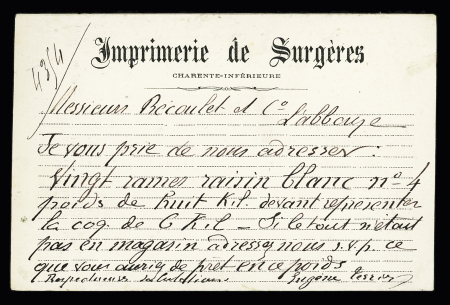 4354
Imprimerie de Surgères
CHARENTE-INFÉRIEURE
Messieurs Bécoulet et Cº
Je vous prie de nous adresser :
Vingt rames raisin blanc nº 4
poids de huit Kil. devant représenter
la coq. de 6 Kil — Si le tout n'était
pas en magasin adressez nous s.v.p. ce
que vous auriez de prêt en ce poids
Respectueuses salutations Eugène Tessier